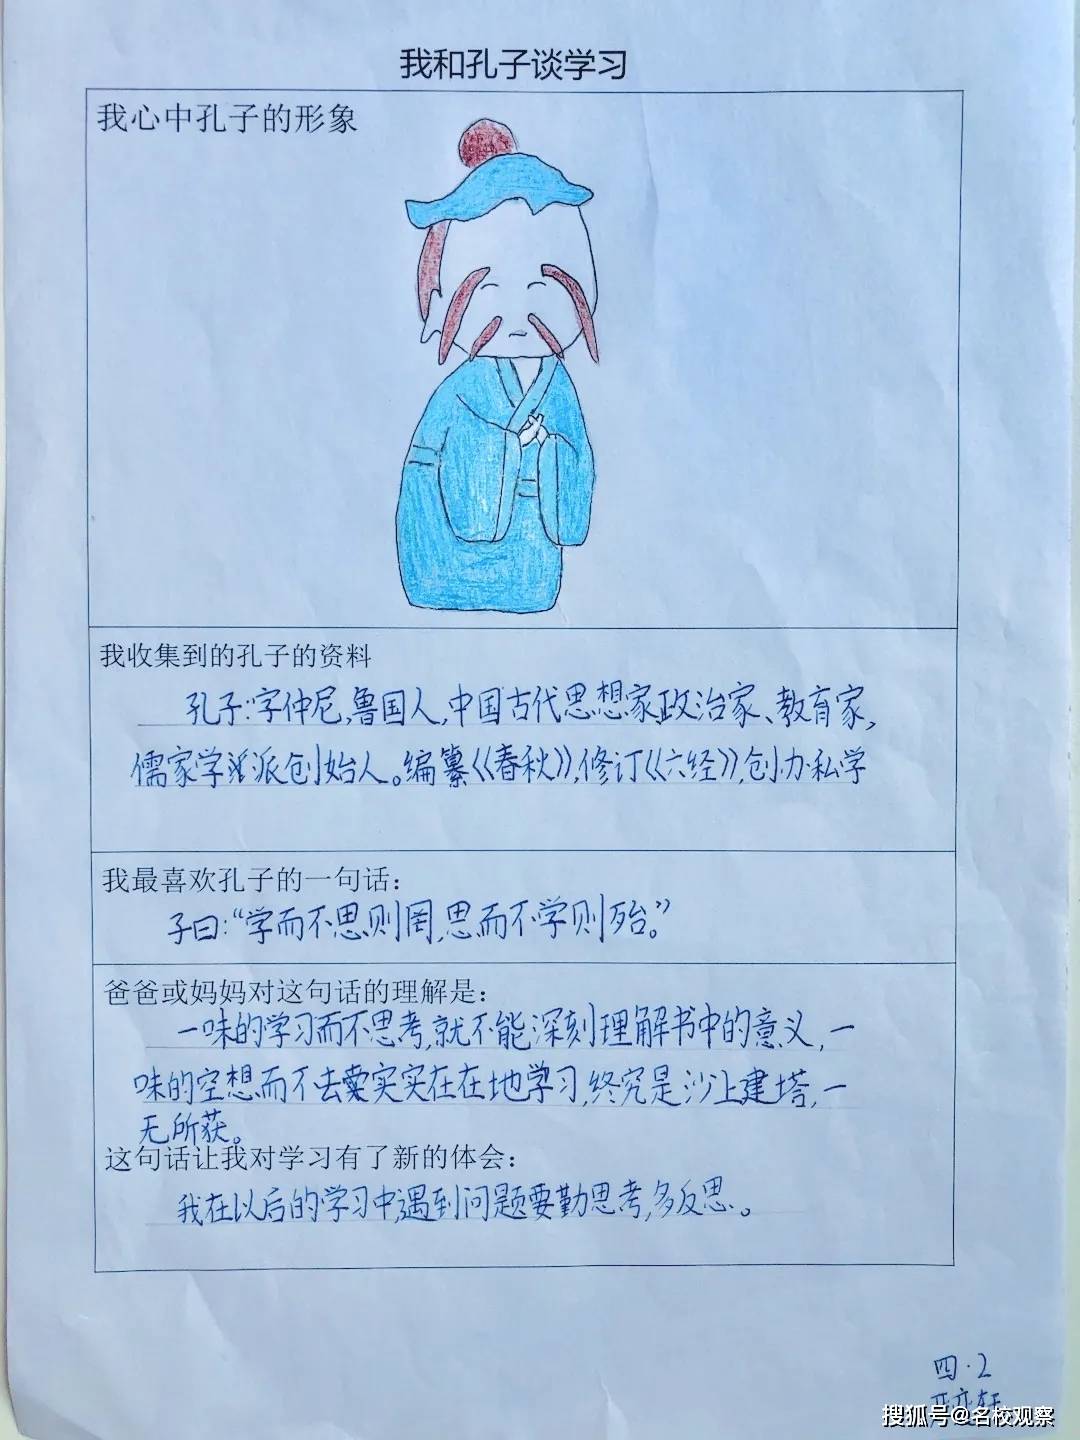 我和孔子谈学习
我心中孔子的形象
我收集到的孔子的资料
孔子:字仲尼,鲁国人,中国古代思想家,政治家、教育家,
儒家学派创始人。编纂《春秋》,修订《六经》,创办私学
我最喜欢孔子的一句话：
子曰:“学而不思则罔,思而不学则殆。”
爸爸或妈妈对这句话的理解是：
一味的学习而不思考,就不能深刻理解书中的意义,一
味的空想而不去实实在在地学习,终究是沙上建塔,一
无所获。
这句话让我对学习有了新的体会：
我在以后的学习中,遇到问题要勤思考,多反思。
四·2
搜狐号@名校观察